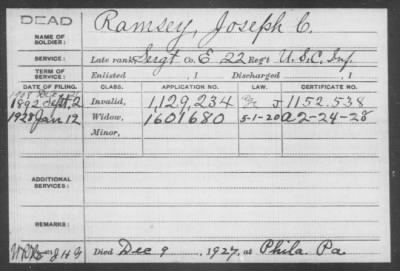 DEAD
NAME OF SOLDIER:
Ramsey, Joseph C.
SERVICE:
Late rank, Sergt Co. E 22 Reg't U.S.C. Inf.
TERM OF SERVICE:
Enlisted , 1 Discharged , 1
DATE OF FILING. CLASS. APPLICATION NO. LAW. CERTIFICATE NO.
1892 Sept. 2 Invalid, 1,129,234 J 1152.538
1928 Jan 12 Widow, 1601680 5-1-20 A2-24-28
Minor,
ADDITIONAL SERVICES:
REMARKS:
Died Dec 9, 1927, at Phila Pa